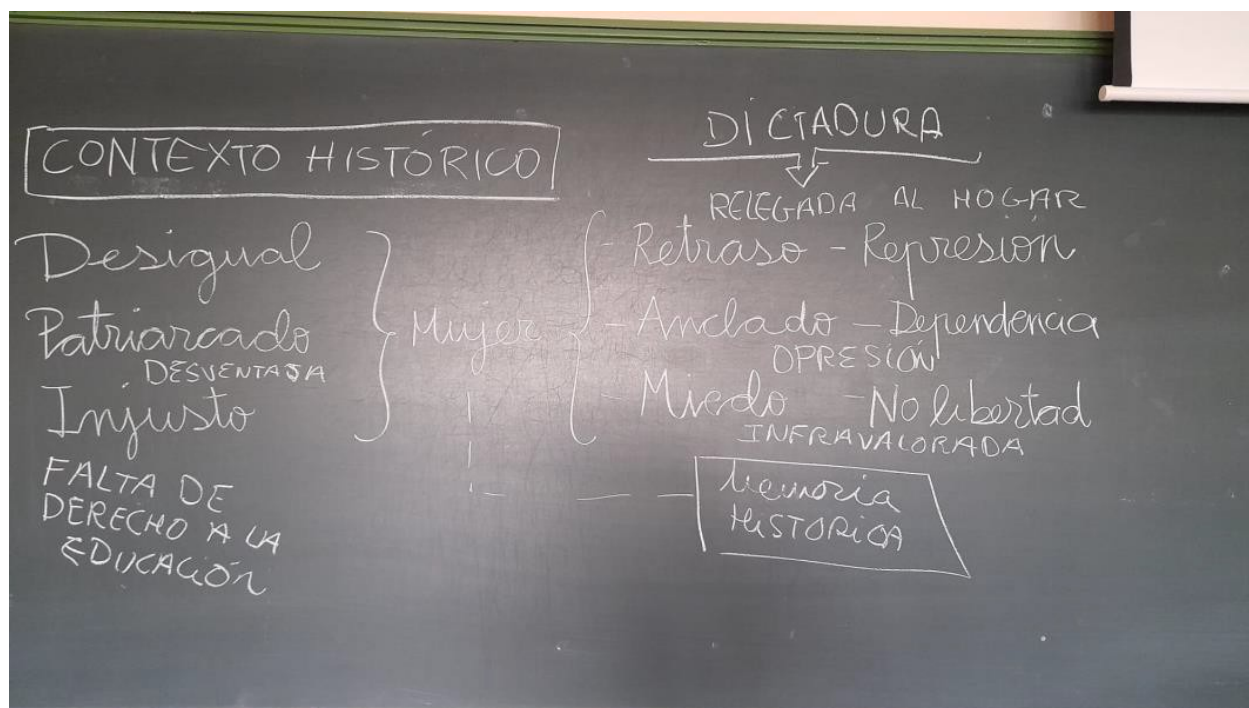 CONTEXTO HISTÓRICO
Desigual
Patriarcado
DESVENTAJA
Injusto
FALTA DE
DERECHO A LA
EDUCACIÓN
Mujer
DICTADURA
RELEGADA AL HOGAR
- Retraso - Represión
- Anclado - Dependencia
OPRESIÓN
- Miedo - No libertad
INFRAVALORADA
Memoria
HISTORICA